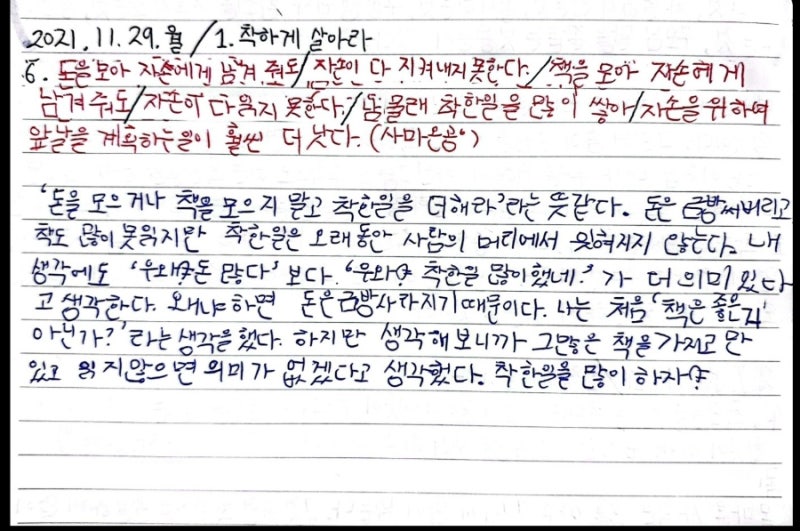 2021.11.29.월/1.착하게 살아라
6. 돈을 모아 자손에게 남겨 줘도/자손이 다 지켜내지 못한다./책을 모아 자손에게
남겨 줘도/자손이 다 읽지 못한다./남 몰래 착한일을 많이 쌓아/자손을 위하여
앞날을 계획하는일이 훨씬 더 낫다. (사마온공)
'돈을 모으거나 책을 모으지 말고 착한일을 더해라'라는 뜻같다. 돈은 금방써버리고
책도 많이 못읽지만 착한일은 오래동안 사람의 머리에서 잊혀지지 않는다. 내
생각에도 '우와 돈 많다' 보다. '우와 착한일 많이했네.'가 더 의미 있다
고 생각한다. 왜냐 하면 돈은 금방사라지기 때문이다. 나는 처음 '책은 좋은거
아닌가?'라는 생각을 했다. 하지만 생각해 보니까 그많은 책을 가지고 만
있고 읽지않으면 의미가 없겠다고 생각했다. 착한일을 많이 하자